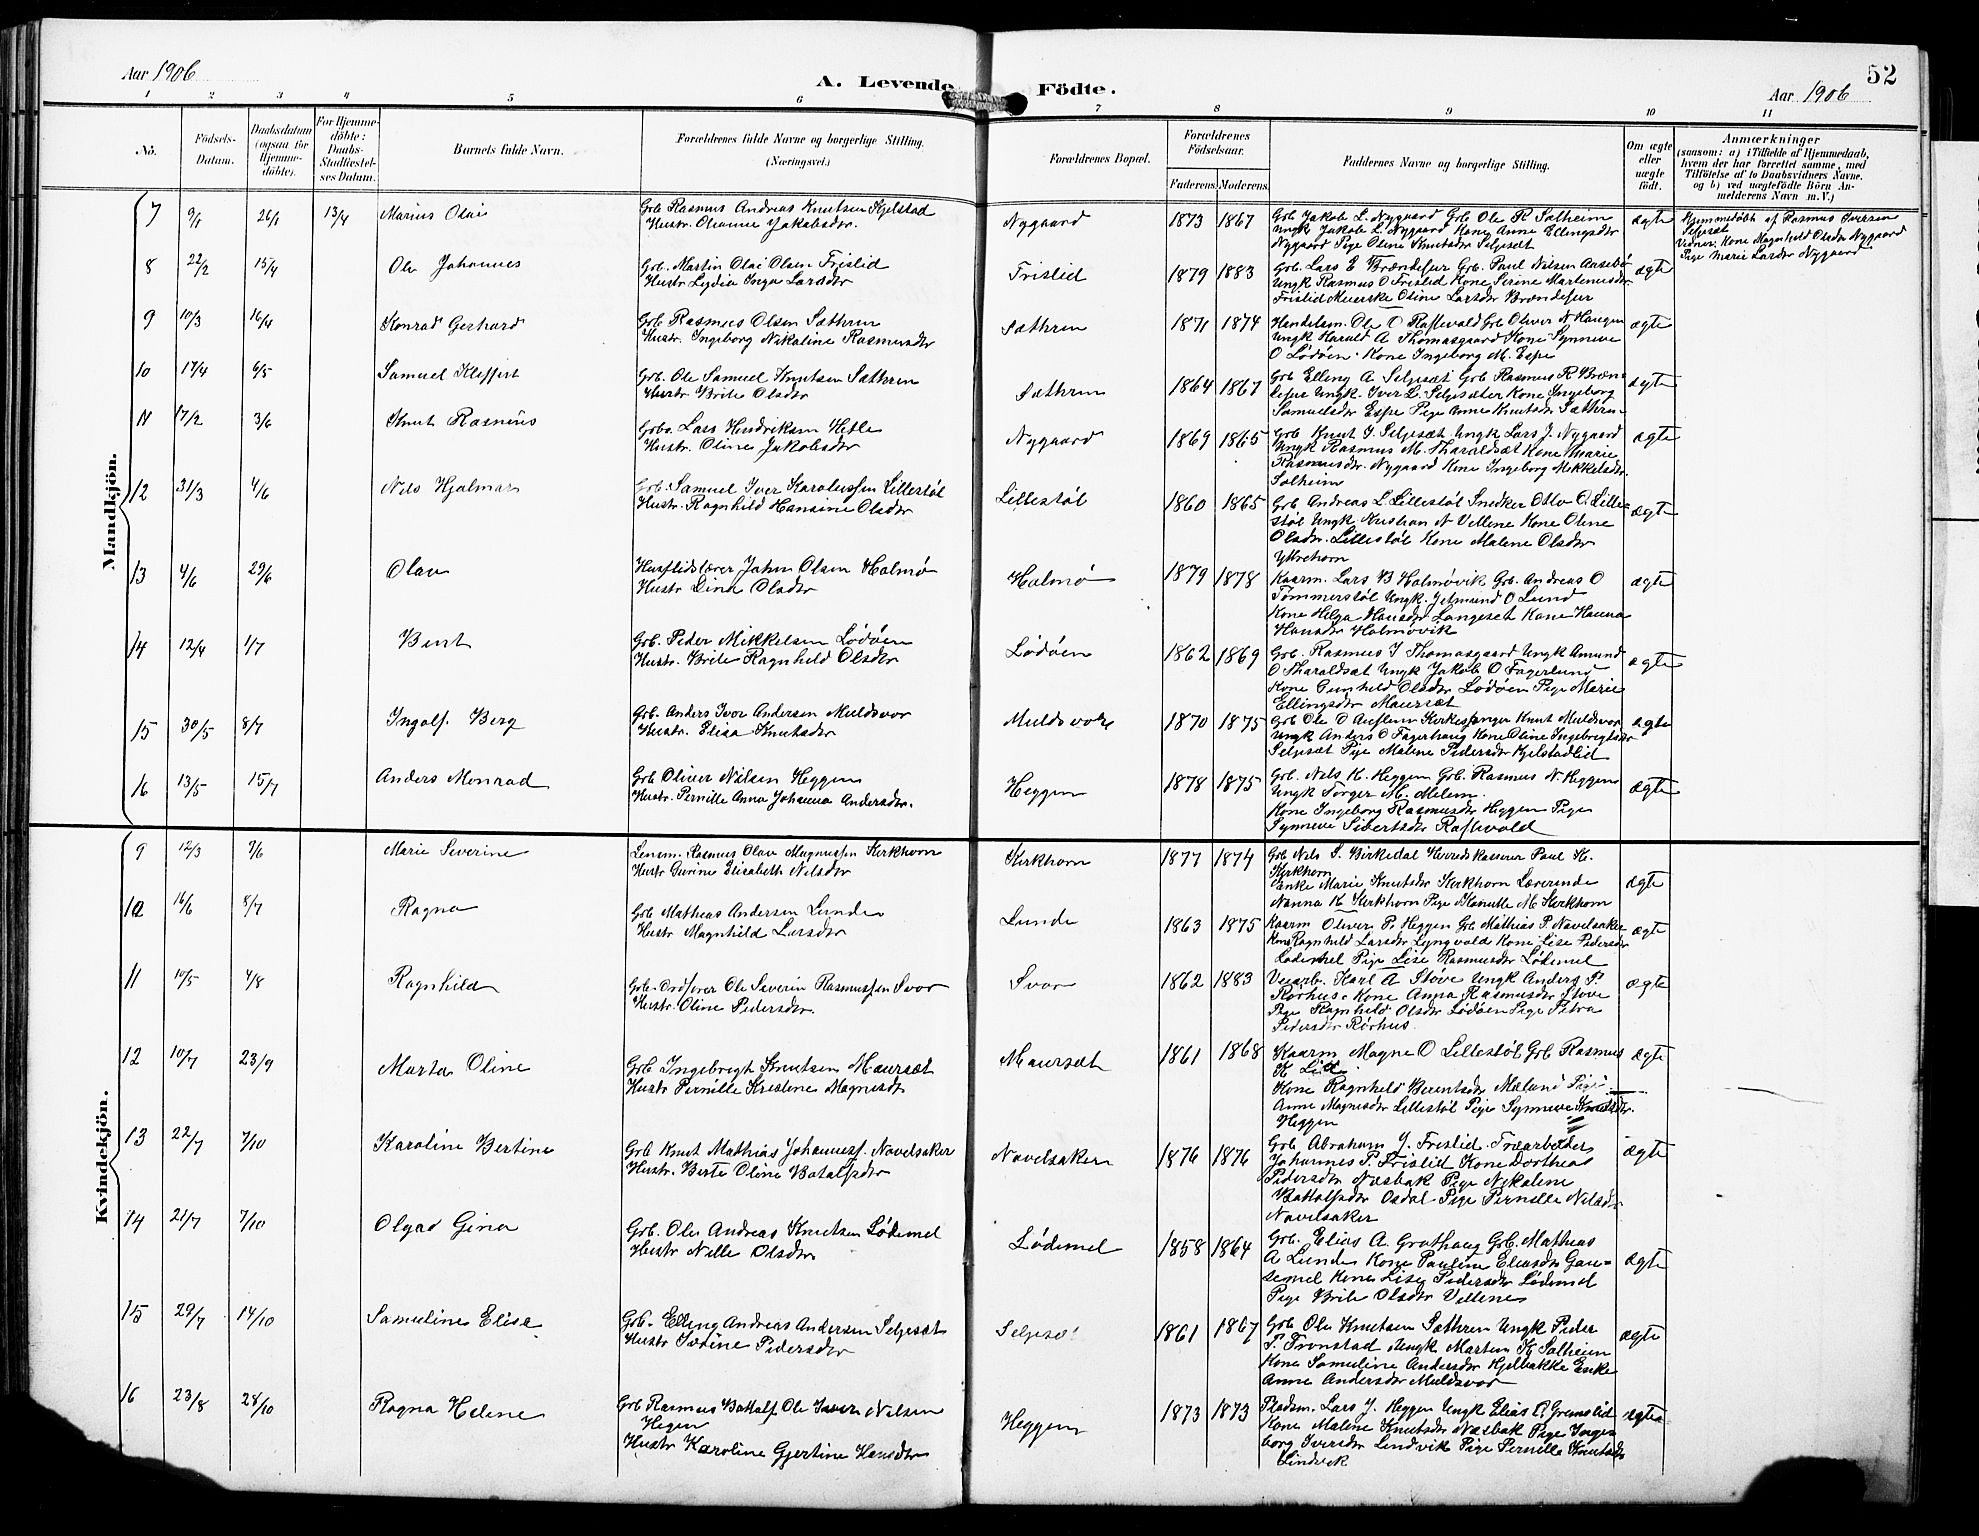 Aar 1906
A. Levende Födte.
Aar 1906
52
1 2 3 4 5 6 7 8 9 10 11
No.
Födsels-
Datum.
Daabsdatum
(ogsaa for
Hjemme-
döbte).
For Hjemme-
döbte:
Daabs-
Stadfæstel-
ses Datum.
Barnets fulde Navn.
Forældrenes fulde Navne og borgerlige Stilling.
(Næringsvei.)
Forældrenes Bopæl.
Forældrenes
Födselsaar.
Faderens. Moderens.
Faddernes Navne og borgerlig Stilling.
Om ægte
eller
uægte
födt.
Anmærkninger
(saasom: a) i Tilfælde af Hjemmedaab,
hvem der har forrettet samme, med
Tilföielse af to Daabsvidners Navne,
og b) ved uægtefödte Börn An-
melderens Navn m. V.)
Mandkjön.
7 9/1 26/1 13/4 Marius Olai
Grb Rasmus Andreas Knutsen Kjelstad
Hustr. Olianne Jakobsdtr.
Nygaard 1873 1867
Grb Jakob L. Nygaard Grb Ole R Solheim
Ungk Jakob L. Nygaard Kone Anne Ellingsdtr
Nygaard Pige Oline Knutsdtr Seljesæt
ægte
Hjemmedöbt af Rasmus Iversen
Seljesæt
Vidner: Kone Magnhild Olsdtr Nygaard
Pige Marie Larsdtr Nygaard
8 22/2 15/4 Ole Johannes
Grb. Martin Olai Olsen Frislid
Hustr Lydia Inga Larsdtr
Frislid 1879 1883
Grb. Lars E Brændefur Grb. Paul Nilsen Aasebö
Ungk Rasmus O Frislid Kone Serine Martinusdtr
Frislid Meierske Oline Larsdtr Brændefur
ægte
9 10/3 16/4 Konrad Gerhard
Grb Rasmus Olsen Sæthren
Hustr. Ingeborg Nikoline Rasmusdtr
Sæthren 1871 1874
Handelsm. Ole O Raftevold Grb Oliver N Haugen
Ungk Harald A Thomasgaard Kone Synneve
O Lödöen. Kone Ingeborg M. Espe
ægte
10 17/4 6/5 Samuel Kleffert
Grb. Ole Samuel Knutsen Sæthren
Hustr Brite Olsdtr
Sæthren 1864 1867
Grb Elling A Seljesæt Grb Rasmus R Bræn-
defur Ungk. Iver L. Seljesæter Kone Ingeborg
Samuelsdtr Espe Pige Anne Knutsdtr Sæthren
ægte
11 17/2 3/6 Knut Rasmus
Grbr. Lars Hendriksen Hetle
Hustr. Oline Jakobsdtr
Nygaard 1869 1865
Grb Knut J. Seljesæt Ungk Lars J. Nygaard
Ungk Rasmus M. Tharaldsæt Kone Marie
Rasmusdtr. Nygaard Kone Ingeborg Mikkelsdtr.
Solheim
ægte
12 31/3 4/6 Nils Hjalmar
Grb. Samuel Iver Karolussen Lillestöl
Hustr. Ragnhild Hansine Olsdtr
Lillestöl 1860 1865
Grb Andreas L Lillestöl Snedker Otto O. Lille-
stöl Ungk Kristian N Vellene Kone Oline
Olsdtr. Lillestöl Kone Malene Olsdtr
Ytrehorn
ægte
13 4/6 29/6 Olav
Husflidslærer John Olsen Holmö
Hustr Lina Olsdtr
Holmö 1879 1878
Kaarm. Lars B Holmövik Grb. Andreas O
Tommerstöl Ungk. Jetmund O Lund
Kone Helga Hansdtr Langeset Kone Hanna
Hansdtr Holmövik
ægte
14 12/4 1/7 Bent
Grb. Peder Mikkelsen Lödöen
Hustr. Brite Ragnhild Olsdtr
Lödöen 1862 1869
Grb. Rasmus J Thomasgaard Ungk Amund
O Tharaldsæt Ungk Jakob O Fagerlund
Kone Gunhild Olsdtr Lödöen Pige Marie
Ellingsdtr Maursæt
ægte
15 30/5 8/7 Ingolf Berg
Grb. Anders Ivar Andersen Muldsvor
Hustr. Elisa Knutsdtr
Muldsvor 1870 1875
Grb Ole O Auflem Kirkesanger Knut Muldsvor
Ungk Anders O Fagerhaug Kone Oline Ingebrigtsdtr
Seljesæt Pige Malene Pedersdtr Kjelstadlid
ægte
16 13/5 15/7 Anders Monrad
Grb Oliver Nilsen Heggen
Hustr. Pernille Anna Johanna Andersdtr.
Heggen 1878 1875
Grb. Nils K. Heggen Grb. Rasmus N. Heggen
Ungk Torger M. Melem.
Kone Ingeborg Rasmusdtr Heggen Pige
Synneve Sivertsdtr Raftevold
ægte
Kvindekjön.
9 12/3 7/6 Marie Severine
Lensm. Rasmus Olav Magnussen Kirkhorn
Hustr Gurine Elisabeth Nilsdtr
Kirkhorn 1877 1874
Grb Nils S. Birkedal Herredskasserer Paul K.
Kirkhorn
Enke Marie Knutsdtr Kirkhorn Lærerinde
Nanna K Kirkhorn Pige Kanutte M Kirkhorn
ægte
10 16/6 8/7 Ragna
Grb Mathias Andersen Lunde
Hustr Magnhild Larsdtr
Lunde 1863 1875
Kaarm Oliver P. Heggen Grb Mathias P. Navelsaker
Kone Ragnhild Larsdtr Lyngvold Kone Lise Pedersdtr
Lödemel Pige Lise Rasmusdtr Lödemel
ægte
11 10/5 4/8 Ragnhild
Grb. Ordförer Ole Severin Rasmussen Svor
Hustr. Oline Pedersdtr.
Svor 1862 1883
Veiarb. Karl A Stöve Ungk Anders P.
Rörhus. Kone Anna Rasmusdtr Stöve
Pige Ragnhild Olsdtr Lödöen Pige Petra
Pedersdtr Rörhus.
ægte
12 10/7 23/9 Marta Oline
Grb Ingebrigt Knutsen Maursæt
Hustr Pernille Kristine Magnusdtr
Maursæt 1861 1868
Kaarm Magne O Lillestöl Grb Rasmus
K Lid
Kone Ragnhild Berentsdtr Mælund Pige
Anne Magnusdtr Lillestöl Pige Synneve Knutsdtr.
Heggen
ægte
13 22/7 7/10 Karoline Bertine
Grb Knut Mathias Johannesf. Navelsaker
Hustr. Berte Oline Botolfsdtr
Navelsaker 1876 1876
Grb Abraham J. Frislid. Træarbeider
Johannes P. Frislid Kone Dorthea
Pedersdtr Næsbak Pige Nikoline
Bottolfsdtr Osdal. Pige Pernille Nilsdtr
Navelsaker
ægte
14 21/7 7/10 Olga Gina
Grb. Ole Andreas Knutsen Lödemel
Hustr Nille Olsdtr
Lödemel 1858 1864
Grb. Elias A. Grothaug Grb. Mathias
A Lunde Kone Pauline Eliasdtr Gau-
semel Kone Lise Pedersdtr Lödemel
Pige Brite Olsdtr Vellene
ægte
15 29/7 14/10 Samuline Elise
Grb. Elling Andreas Andersen Seljesæt
Hustr Severine Pedersdtr
Seljesæt 1861 1867
Grb Ole Knutsen Sæthren Ungk Peder
P. Tronstad Ungk Martin K Solheim
Kone Samuline Andersdtr Kjelbakke Enke
Anne Andersdtr Muldsvor
ægte
16 23/8 28/10 Ragna Heline
Grb Rasmus Bottolf Ole Iver Nilsen
Hegen
Hustr Karoline Gjertine Hansdtr
Heggen 1873 1873
Pladsm. Lars J. Heggen Ungk Elias P. Gremslid
Kone Maline Knutsdtr Næsbak Pige Inge-
borg Iversdtr Lindvik Pige Pernille Knutsdtr
Lindvik
ægte